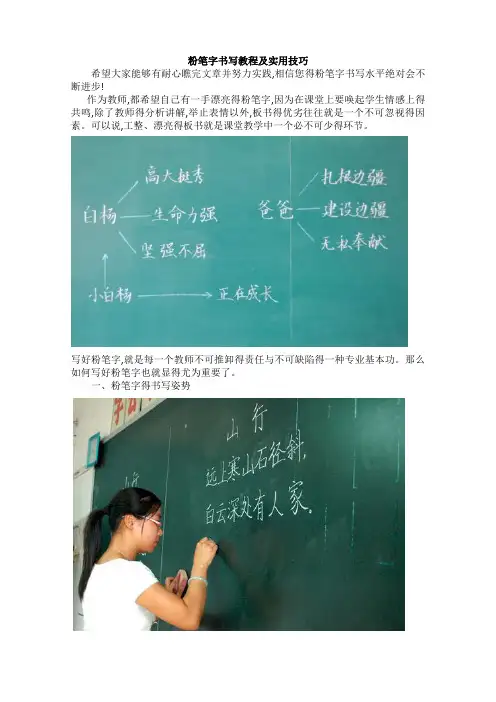 粉笔字书写教程及实用技巧
希望大家能够有耐心瞧完文章并努力实践,相信您得粉笔字书写水平绝对会不
断进步!
作为教师,都希望自己有一手漂亮得粉笔字,因为在课堂上要唤起学生情感上得
共鸣,除了教师得分析讲解,举止表情以外,板书得优劣往往就是一个不可忽视得因
素。可以说,工整、漂亮得板书就是课堂教学中一个必不可少得环节。
高大挺秀
白杨 生命力强
坚强不屈
小白杨 正在成长
扎根边疆
爸爸 建设边疆
无私奉献
写好粉笔字,就是每一个教师不可推卸得责任与不可缺陷得一种专业基本功。那么
如何写好粉笔字也就显得尤为重要了。
一、粉笔字得书写姿势
山行
远上寒山石径斜,
白云深处有人家。